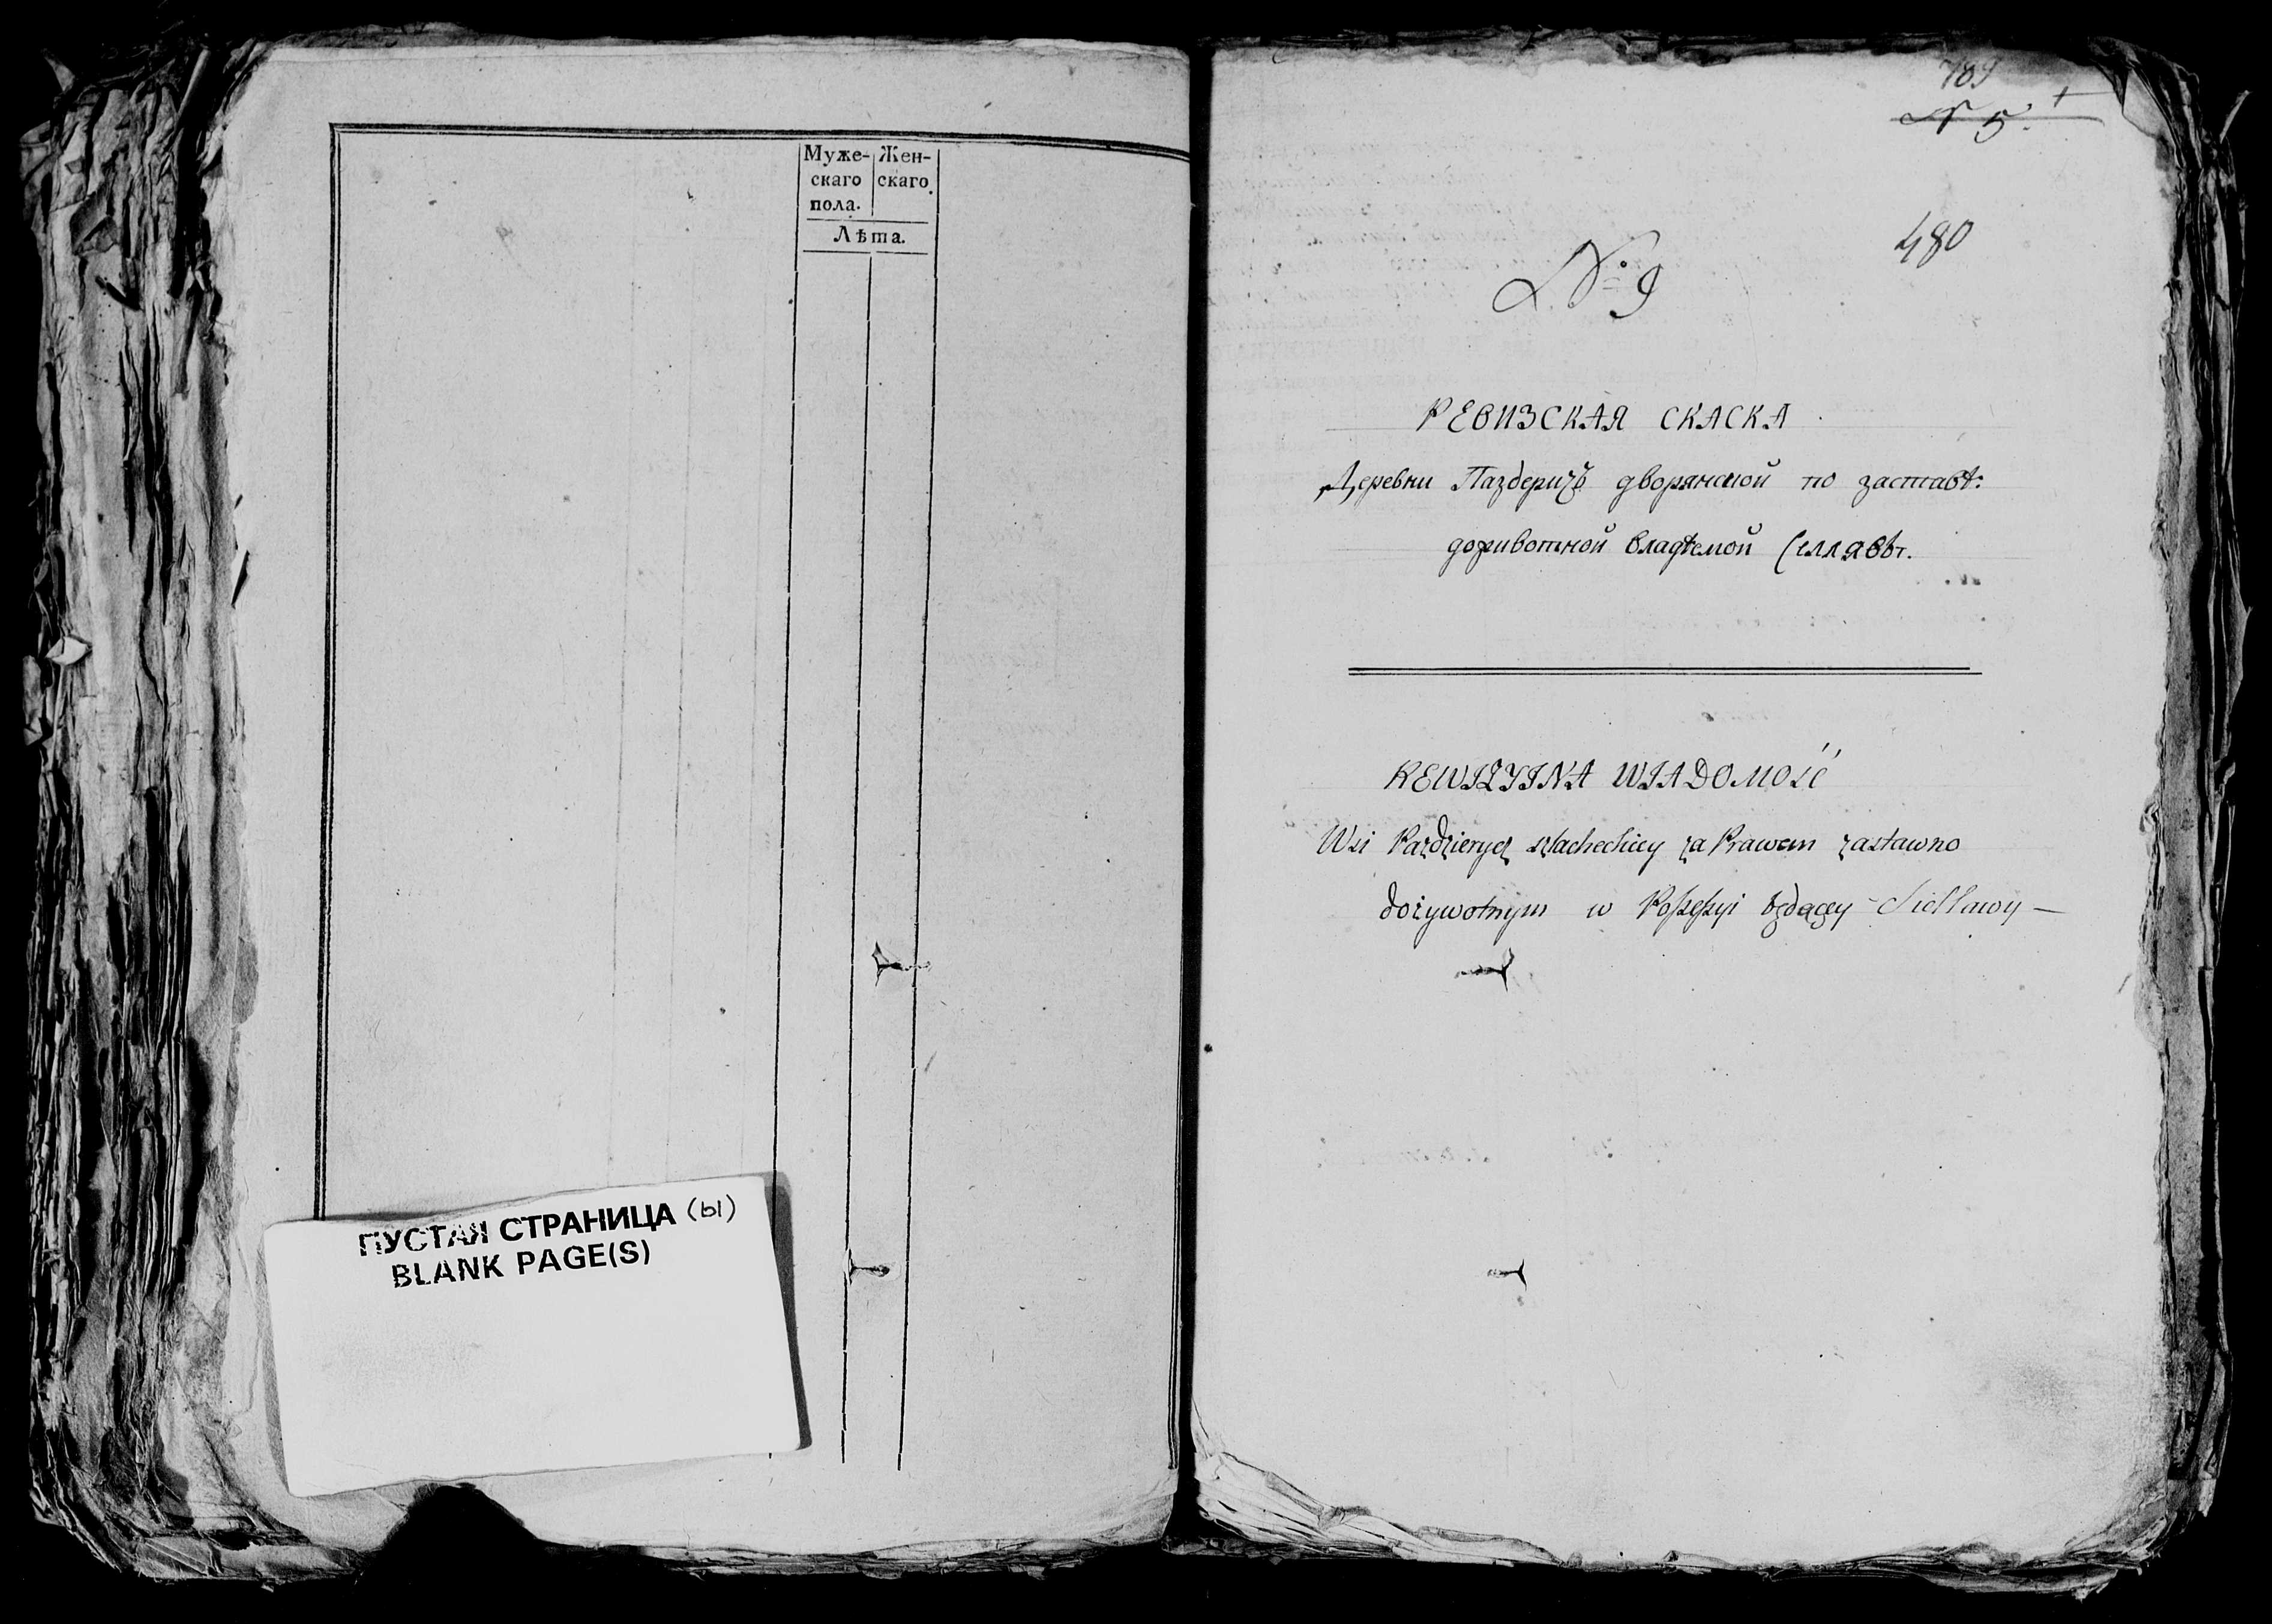 Муже- Жен-
скаго скаго
пола.
Лѣта.
ПУСТАЯ СТРАНИЦА (ы)
BLANK PAGE(S)
789
N 5.
480
№ 9
РЕВИЗСКАЯ СКАСКА
Деревни Паздеричъ дворянской по заставѣ:
доживотной владѣемой
REWIZYINA WIADOMOŚĆ
Wsi Pazdzierycz szlacheckiey za Prawem zastawno
dożywotnym w Possessyi będącey Siellawy —